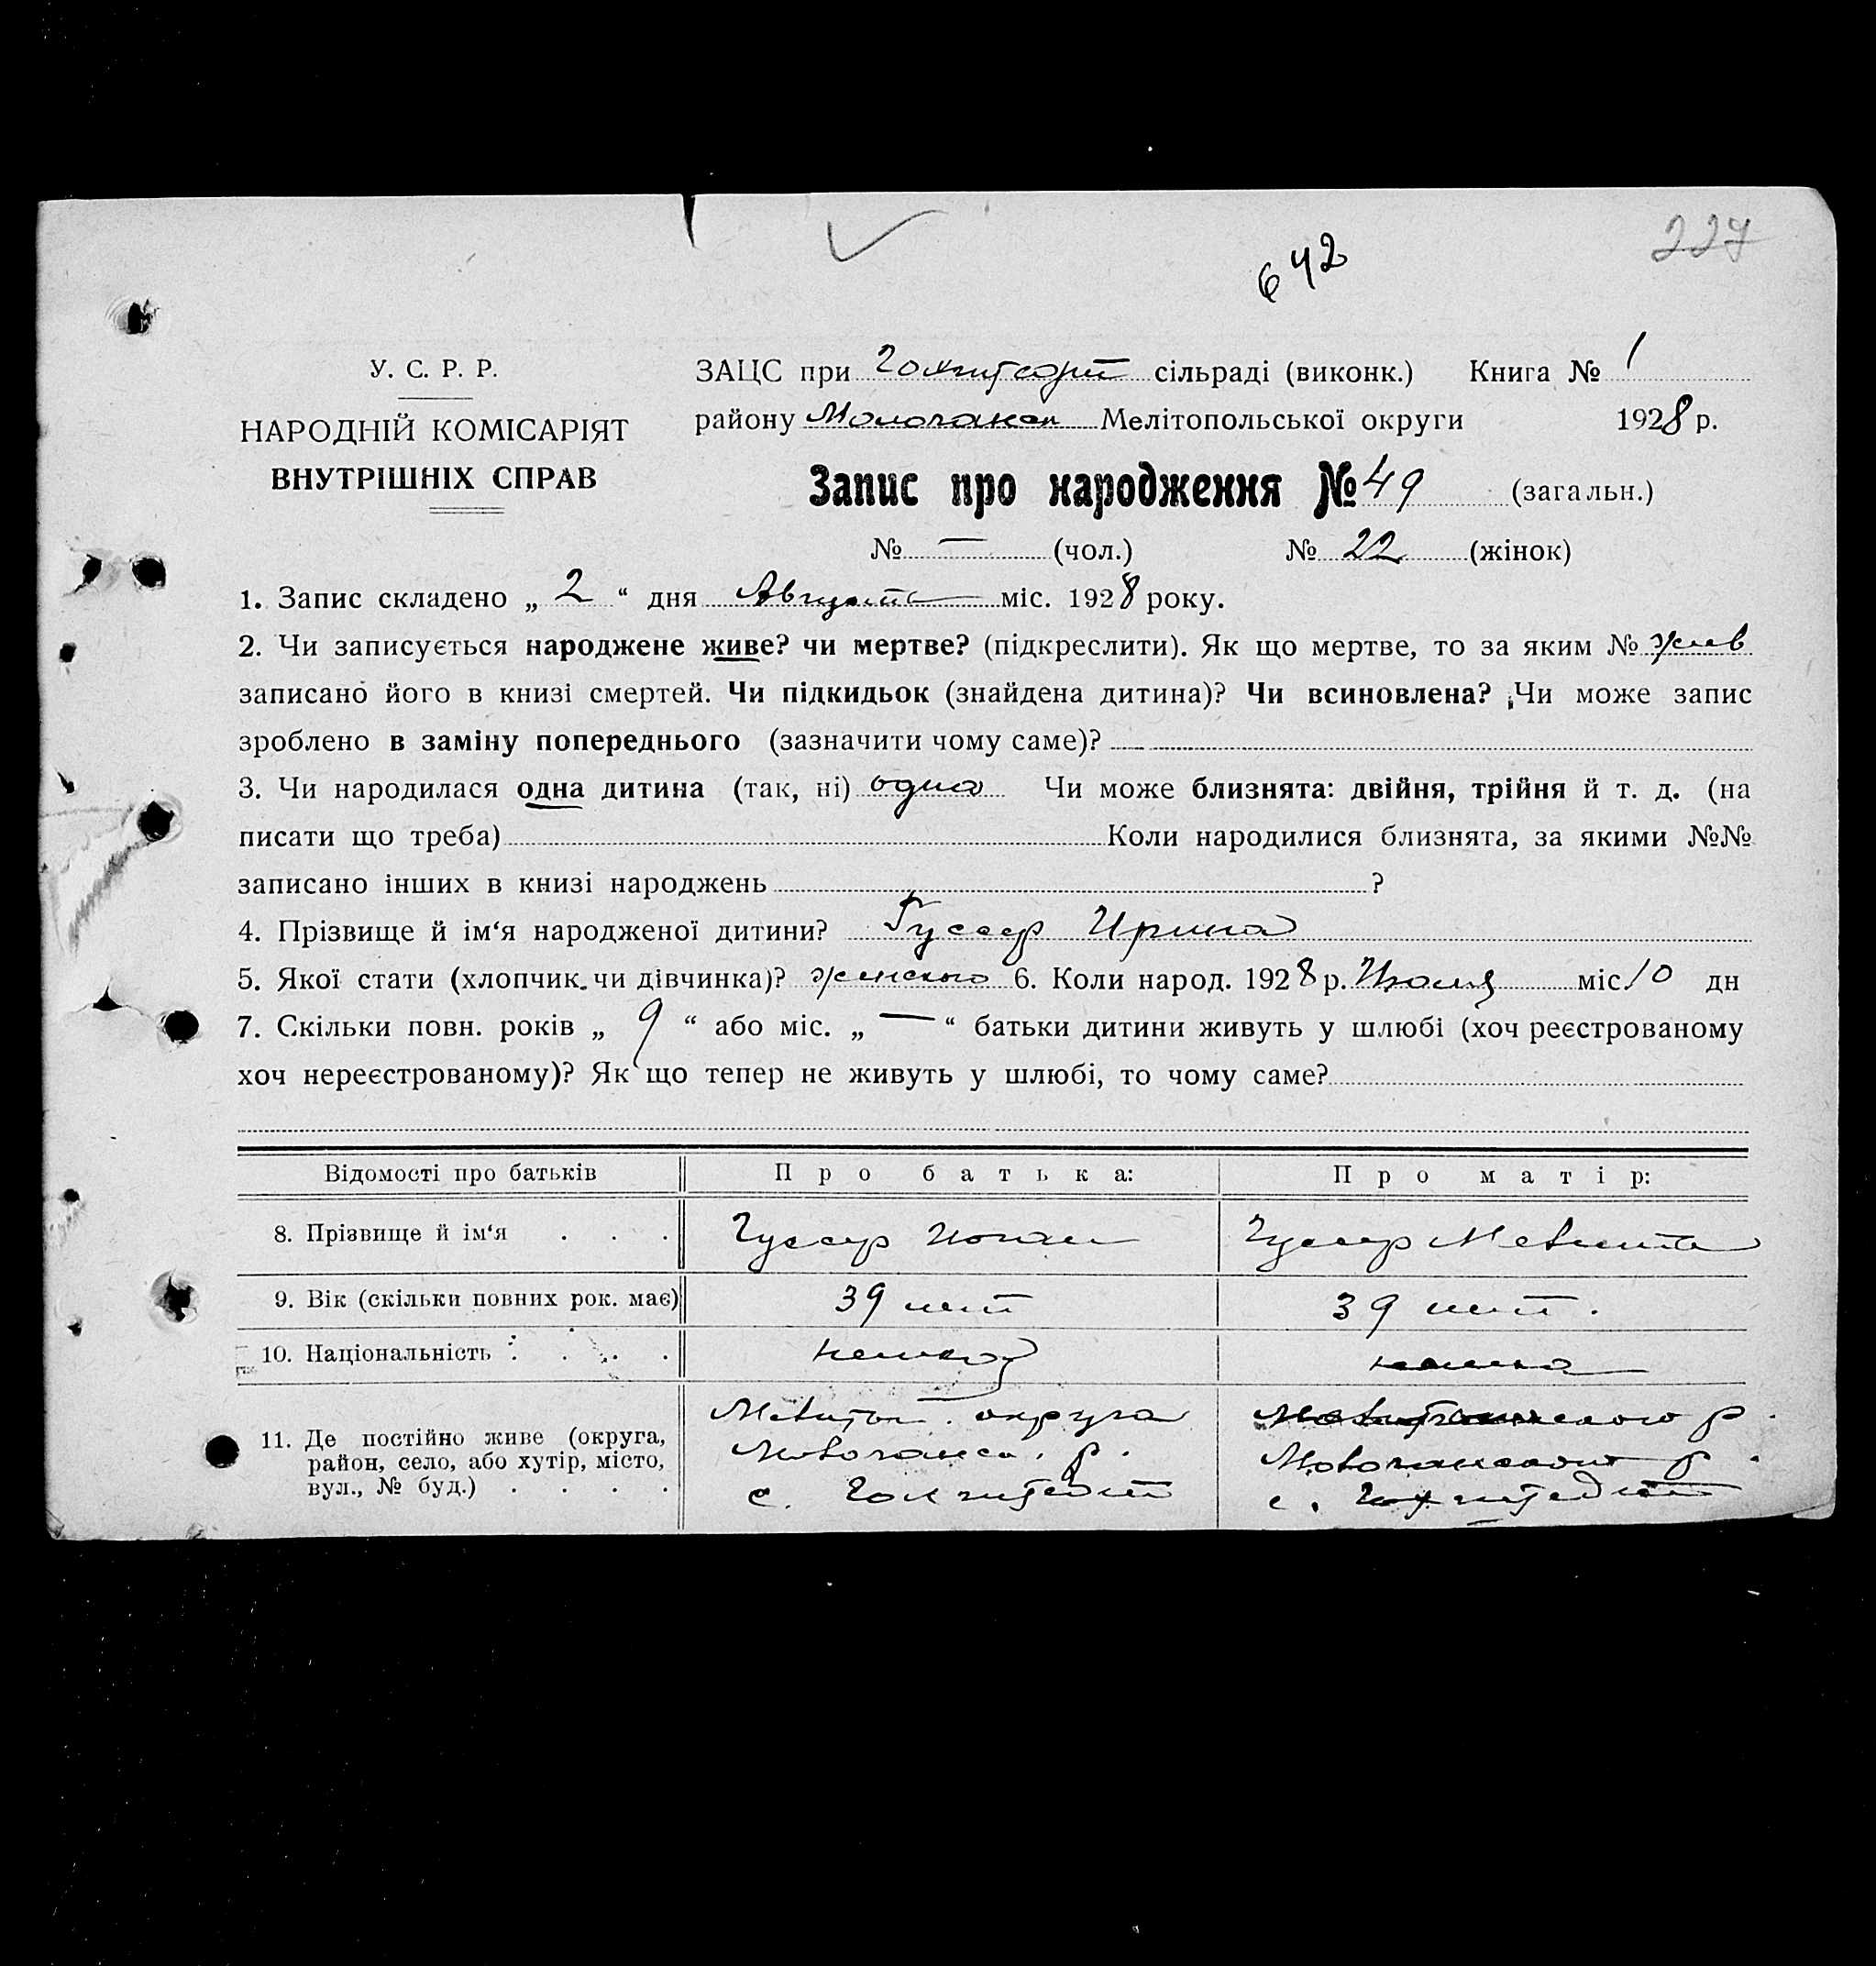 227
642
У. С. Р. Р.
НАРОДНІЙ КОМІСАРІЯТ
ВНУТРІШНІХ СПРАВ
ЗАЦС при сільраді (виконк.) Книга № 1
району Молочанск Мелітопольської округи 1928 р.
Запис про народження № 49 (загальн.)
№ — (чол.) № 22 (жінок)
1. Запис складено „ 2 “ дня Августа міс. 1928 року.
2. Чи записується народжене живе? чи мертве? (підкреслити). Як що мертве, то за яким № жив
записано його в книзі смертей. Чи підкидьок (знайдена дитина)? Чи всиновлена? Чи може запис
зроблено в заміну попереднього (зазначити чому саме)?
3. Чи народилася одна дитина (так, ні) одна Чи може близнята: двійня, трійня й т. д. (на
писати що треба) Коли народилися близнята, за якими №№
записано інших в книзі народжень ?
4. Прізвище й ім‘я народженої дитини? Гуссар Ирина
5. Якої стати (хлопчик чи дівчинка)? женского 6. Коли народ. 1928 р. Июля міс 10 дн
7. Скільки повн. років „ 9 “ або міс. „ — “ батьки дитини живуть у шлюбі (хоч реєстрованому
хоч нереєстрованому)? Як що тепер не живуть у шлюбі, то чому саме?
Відомості про батьків Про батька: Про матір:
8. Прізвище й ім‘я . . . Гуссар Иоган Гуссар
9. Вік (скільки повних рок. має) 39 лет 39 лет.
10. Національність . . . . немец немка
11. Де постійно живе (округа,
район, село, або хутір, місто,
вул., № буд.) . . . .
Мелитоп. округа
Молочанск. р.
с.
р.
Молочанского р.
с.